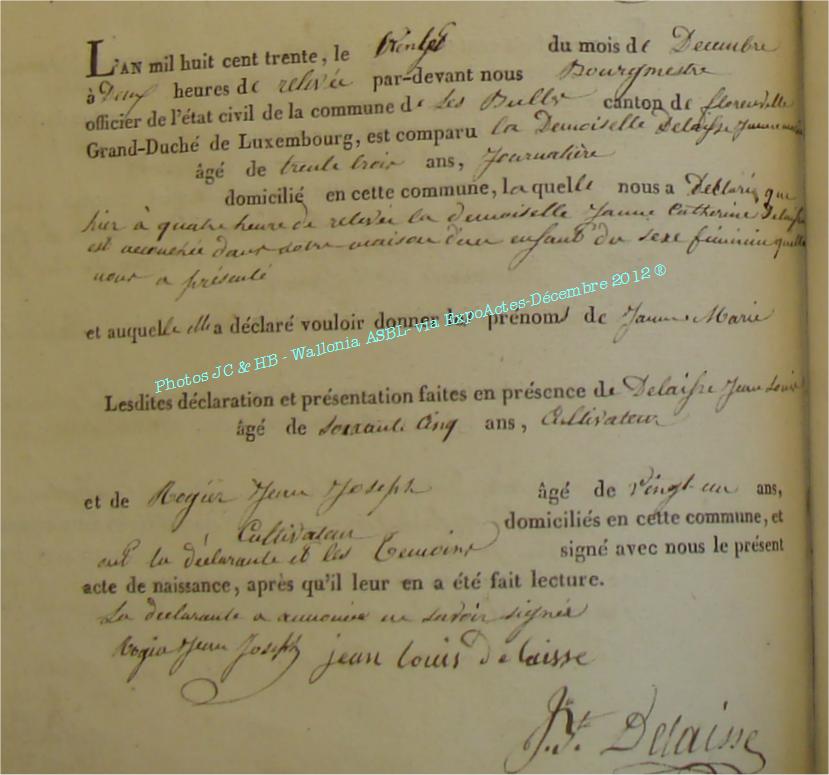 L'AN mil huit cent trente, le Vingt du mois de Decembre
à Deux heures de relevée par-devant nous Bourgmestre
officier de l'état civil de la commune de Les Bulles canton de florenville
Grand-Duché de Luxembourg, est comparu la Demoiselle Delaisse Jeanne
âgé de trente trois ans, Journalière
domicilié en cette commune, laquelle nous a Déclaré que
hier à quatre heure de relevée la demoiselle Janne Catherine Delaisse
est accouchée dans notre maison d'un enfant du sexe féminin quelle
nous a présenté
et auquelle elle a déclaré vouloir donner les prénoms de Janne Marie
Photos JC & HB - Wallonia ASBL- via ExpoActes-Décembre 2012 ®
Lesdites déclaration et présentation faites en présence de Delaisse Jean Louis
âgé de soixante Cinq ans, Cultivateur
et de Rogier Jean Joseph âgé de Vingt-un ans,
Cultivateur domiciliés en cette commune, et
ont la déclarante et les Temoins signé avec nous le présent
acte de naissance, après qu'il leur en a été fait lecture.
La declarante a annoncée ne savoir signée
Rogie Jean Joseph jean louis delaisse
J. Bt. Delaisse